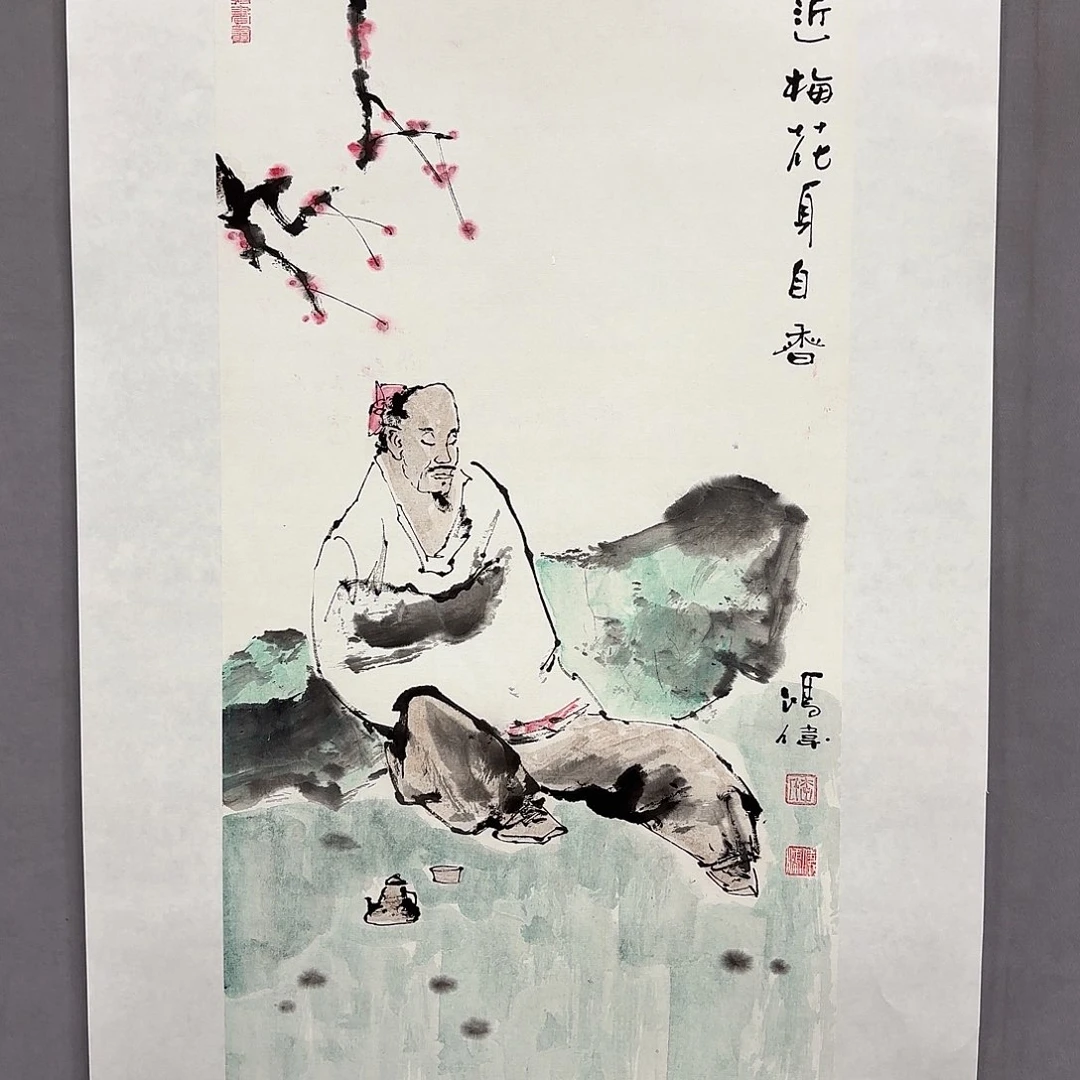 近梅花身自香
鸿伟